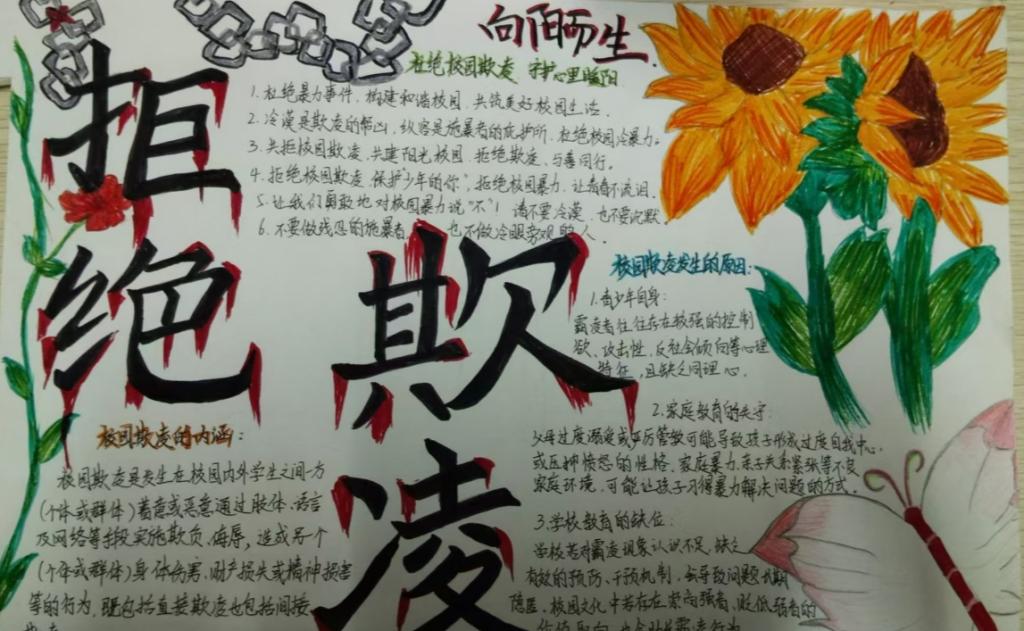 向阳而生
拒绝
欺凌
杜绝校园欺凌 守护心里暖阳
1. 杜绝暴力事件,构建和谐校园,共筑美好校园生活.
2. 冷漠是欺凌的帮凶,纵容是施暴者的庇护所,杜绝校园冷暴力。
3. 共拒校园欺凌,共建阳光校园,拒绝欺凌,与善同行。
4. 拒绝校园欺凌"保护少年的你",拒绝校园暴力,让青春不流泪.
5. 让我们勇敢地对校园暴力说"不"! 请不要冷漠,也不要沉默.
6. 不要做残忍的施暴者 也不做冷眼旁观的人.
校园欺凌发生的原因:
1. 青少年自身:
霸凌者往往存在较强的控制
欲、攻击性,反社会倾向等心理
特征,且缺乏同理心.
2. 家庭教育的失守:
父母过度溺爱或严厉管教可能导致孩子形成过度自我中心.
或压抑愤怒的性格,家庭暴力,亲子关系紧张等不良
家庭环境,可能让孩子习得暴力解决问题的方式.
3. 学校教育的缺位:
学校若对霸凌现象认识不足,缺乏
有效的预防、干预机制,会导致问题长期
隐匿,校园文化中若存在崇尚强者,贬低弱者的
价值取向,也会助长霸凌行为
校园欺凌的内涵:
校园欺凌是发生在校园内外学生之间一方
(个体或群体)蓄意或恶意通过肢体、语言
及网络等手段实施欺负、侮辱,造成另一个
(个体或群体)身体伤害,财产损失或精神损害
等的行为,既包括直接欺凌也包括间接